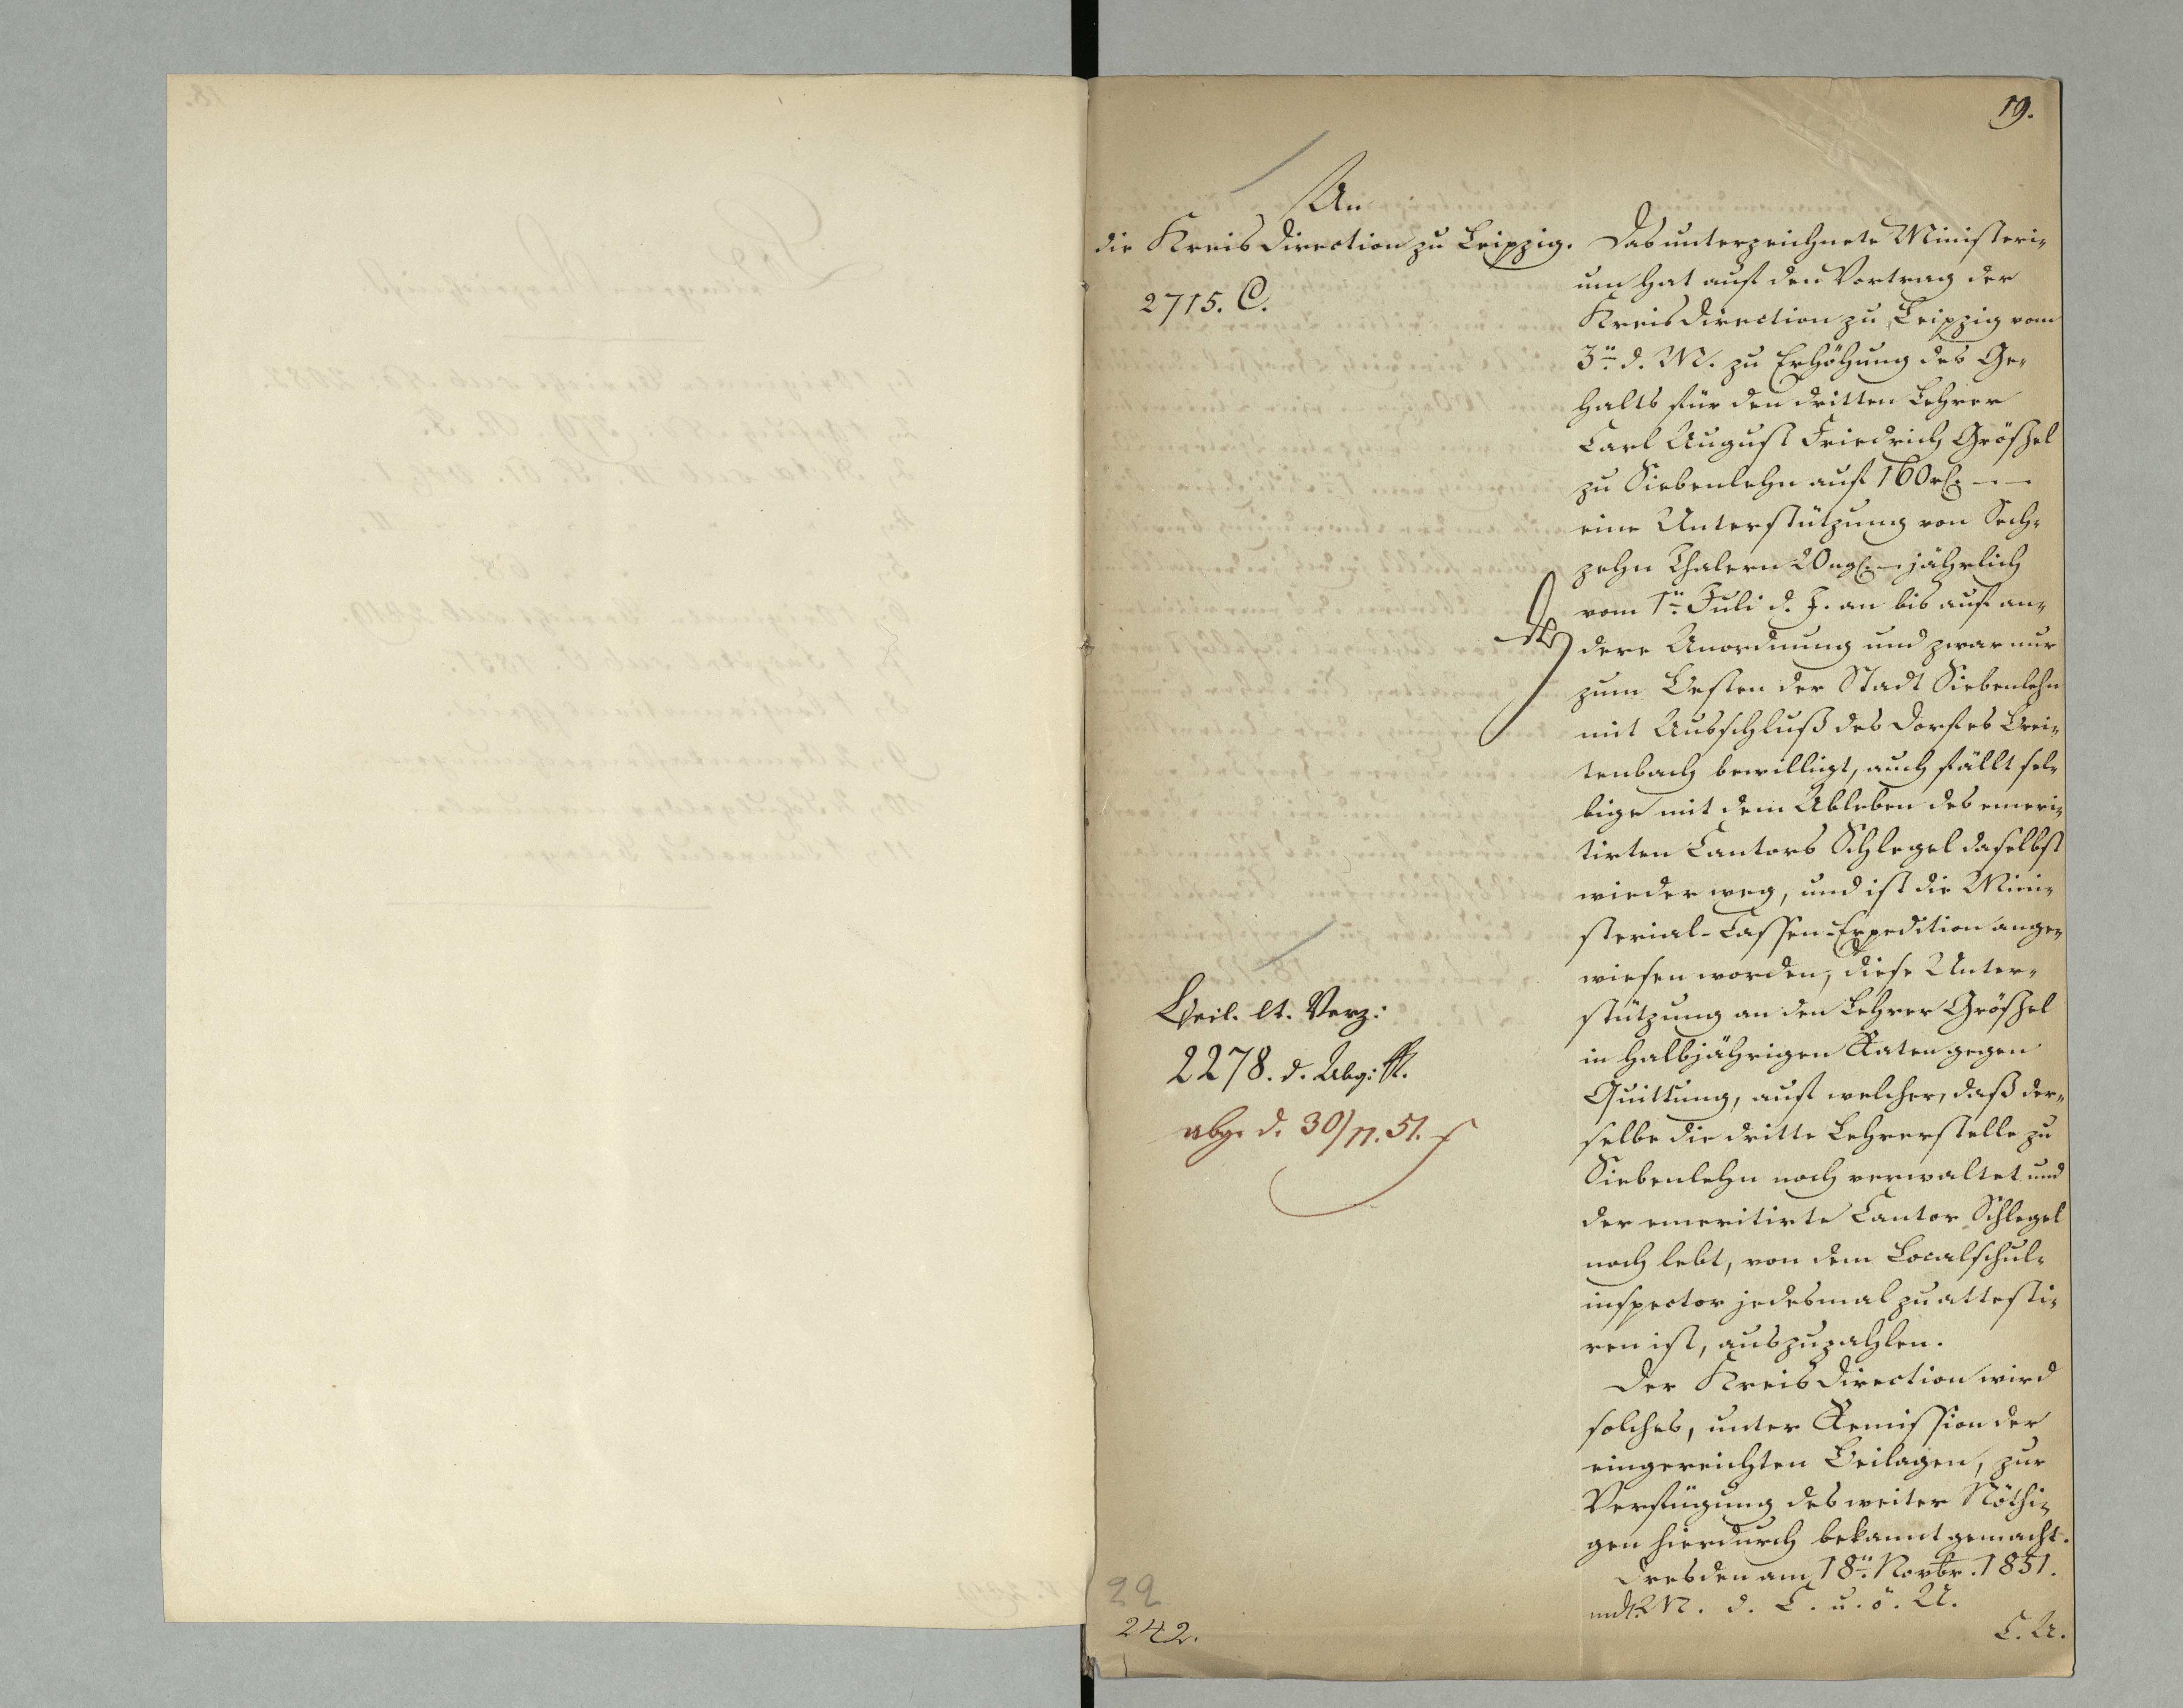 19.
An
die Kreisdirection zu Leipzig.
2715. C.
Das unterzeichnete Ministeri-
um hat auf den Vortrag der
Kreisdirection zu Leipzig vom
3n. d. M. zu Erhöhung des Ge-
halts für den dritten Lehrer
Carl August Friedrich Gröschel
zu Siebenlehn auf 160 rℓ. – –
eine Unterstützung von Sech-
zehn Thalern 20 ngℓ. – jährlich
vom 1n. Juli d. J. an bis auf an-
dere Anordnung und zwar nur
zum Besten der Stadt Siebenlehn
mit Ausschluß des Dorfes Brei-
tenbach bewilligt, auch fällt sel-
bige mit dem Ableben des emeri-
tirten Cantors Schlegel daselbst
wieder weg, und ist die Mini-
sterial-Cassen-Expedition ange-
wiesen worden, diese Unter-
stützung an den Lehrer Gröschel
in halbjährigen Raten gegen
Quittung, auf welcher, daß der-
selbe die dritte Lehrerstelle zu
Siebenlehn noch verwaltet und
der emeritirte Cantor Schlegel
noch lebt, von dem Localschul-
inspector jedesmal zu attesti-
ren ist, auszuzahlen.
Der Kreisdirection wird
solches, unter Remission der
eingereichten Beilagen, zur
Verfügung des weiter Nöthi-
gen hierdurch bekannt gemacht.
Dresden am 18n. Novbr. 1851.
M. d. C. u. ö. U.
C. U.
Beil. lt. Verz:
2278. d. Abg: R.
abg. d. 30/11. 51.
22
242.